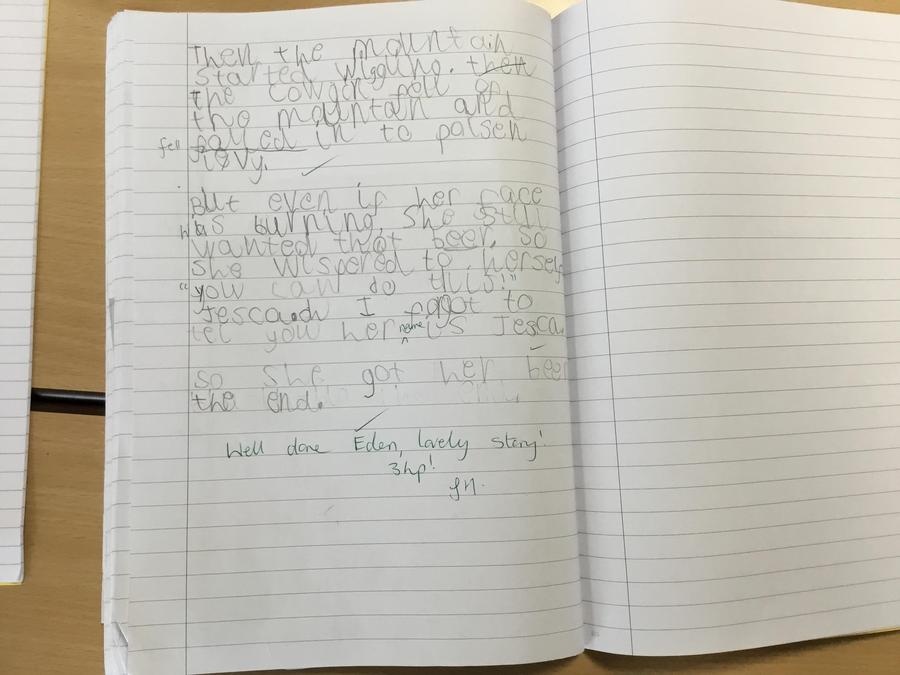 Then the mountain
started wiggling. then
the cowgirl fell of
the mountain and
fell falled in to poisen
iovy.
But even if her face
was burning, she still
wanted that beer, so
she wispered to herself
"you can do this!"
Jesca. oh I fogot to
tell you her name is Jesca.
so she got her beer
the end.
Well done Eden, lovely story!
3hp!